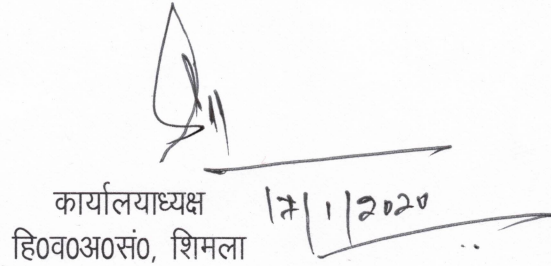 कार्यालयाध्यक्ष 17/1/2020
हि0व0अ0सं0, शिमला